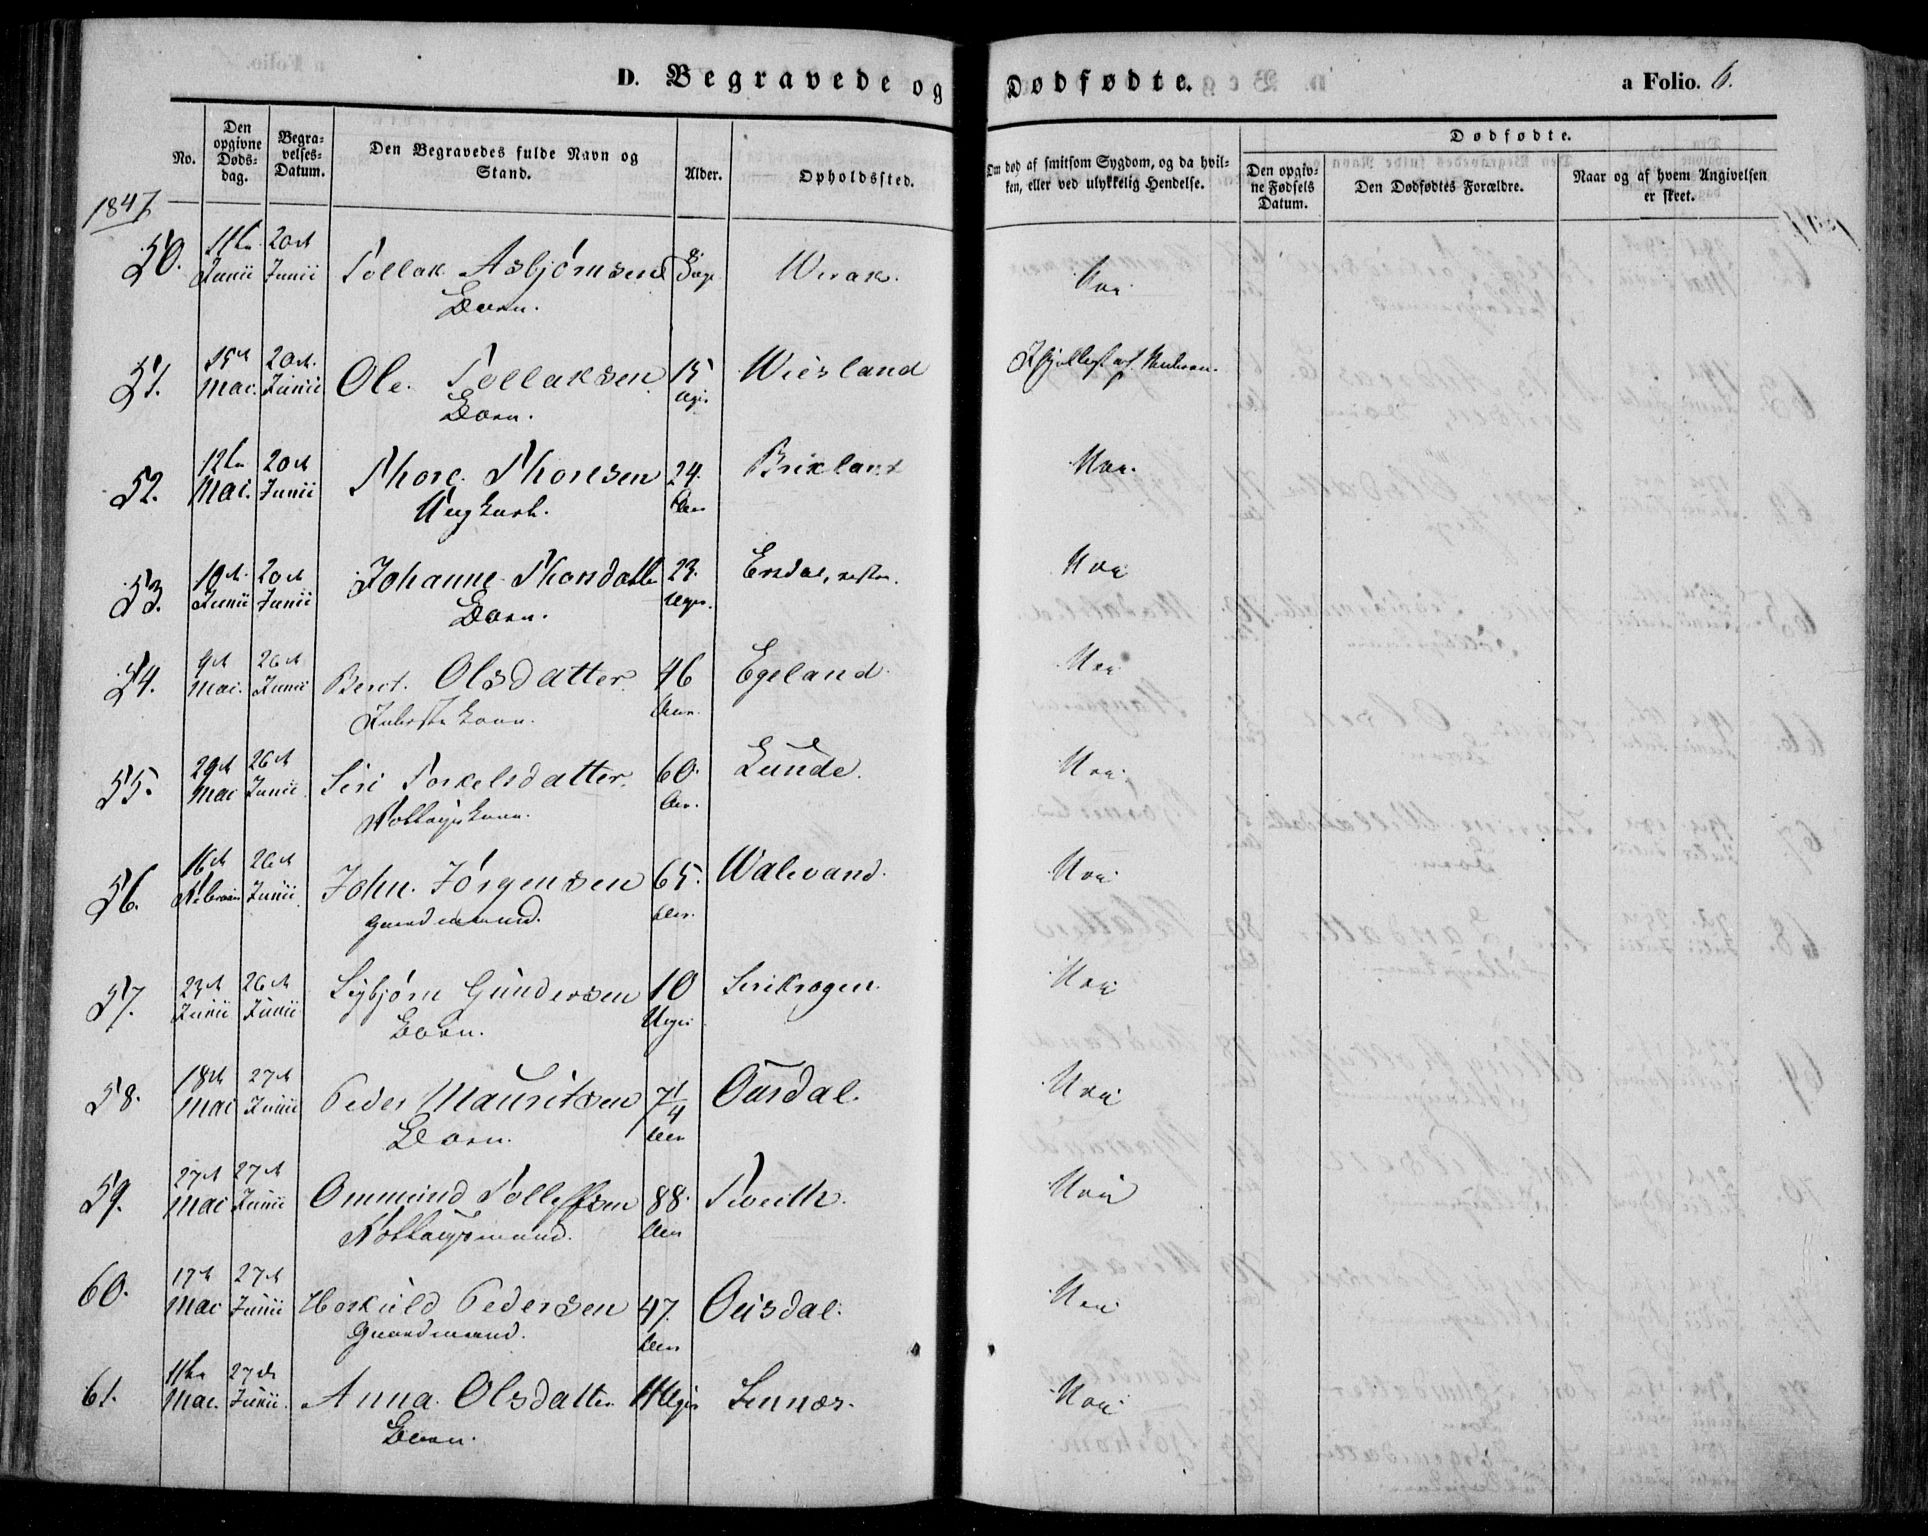 D. Begravede og Dødfødte.
a Folio. 6.
No.
Den opgivne Døds-dag.
Begra-velses-Datum.
Den Begravedes fulde Navn og Stand.
Alder.
Opholdssted.
Om død af smitsom Sygdom, og da hvil-ken, eller ved ulykkelig Hendelse.
Dødfødte.
Den opgiv-ne Fødsels Datum.
Den Dødfødtes Forældre.
Naar og af hvem Angivelsen er skeet.
1847
50. 11te Junii 20de Junii Tollak Asbjørnsen 8 Dage Wirak. Nei
Barn.
51. 15de Mai. 20de Junii Ole Tollaksen 15 Uger Wiesland
Barn.
52. 12te Mai. 20de Junii Thore Thoresen 24. Aar Brixland Nei.
Ungkarl.
53. 10de Junii 20de Junii Johanne Thorsdatter 23. Uger. Nei
Barn.
54. 9de Mai. 26de Junii Beret Olsdatter 46 Aar. Egeland Nei
55. 29de Mai 26de Junii Siri Torkelsdatter 60. Aar. Lunde. Nei
56. 16de 26de Junii John Jørgensen 65. Aar. Walevand. Nei
Gaardmand.
57. 23de Junii 26de Junii Seybjørn Gundersen 10 Uger Sirikrogen Nei
Barn.
58. 18de Mai 27de Junii Peder Mauritsen 7 1/4 Aar Ousdal. Nei
Barn.
59. 27de Mai 27de Junii Ommund Tollefsen 88. Aar Tveith. Nei
60. 17de Mai 27de Junii Hoskuld Pedersen 47. Aar Ousdal. Nei
Gaardmand.
61. 11te Mai. 27de Junii Anna Olsdatter 11 Uger Sinnæs. Nei
Barn.